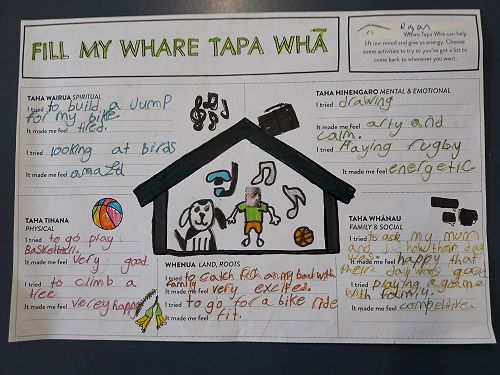 FILL MY WHARE TAPA WHĀ
Ryan
Whare Tapa Whā can help
lift our mood and give us energy. Choose
some activities to try so you've got a list to
come back to whenever you want.
TAHA WAIRUA SPIRITUAL
I tried to build a Jump
for my bike.
It made me feel tired.
I tried looking at birds
It made me feel amazd
TAHA HINENGARO MENTAL & EMOTIONAL
I tried drawing
It made me feel arty and
calm.
I tried Playing rugby
It made me feel energetic.
TAHA TINANA
PHYSICAL
I tried to go play
Basketball.
It made me feel very good.
I tried to climb a
tree
It made me feel verey happy
WHENUA LAND, ROOTS
I tried to catch fish on my boat with
family
It made me feel very excited.
I tried to go for a bike ride
It made me feel fit.
TAHA WHĀNAU
FAMILY & SOCIAL
I tried to ask my mum
and how ther day
was.
It made me feel happy that
there day was good
I tried playing a game
with family.
It made me feel competitive.